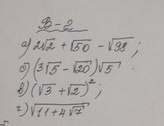 В-2
а) 2√2 + √50 - √98;
б) (3√5 - √20)√5;
в) (√3 + √2)²;
г) √11+4√7